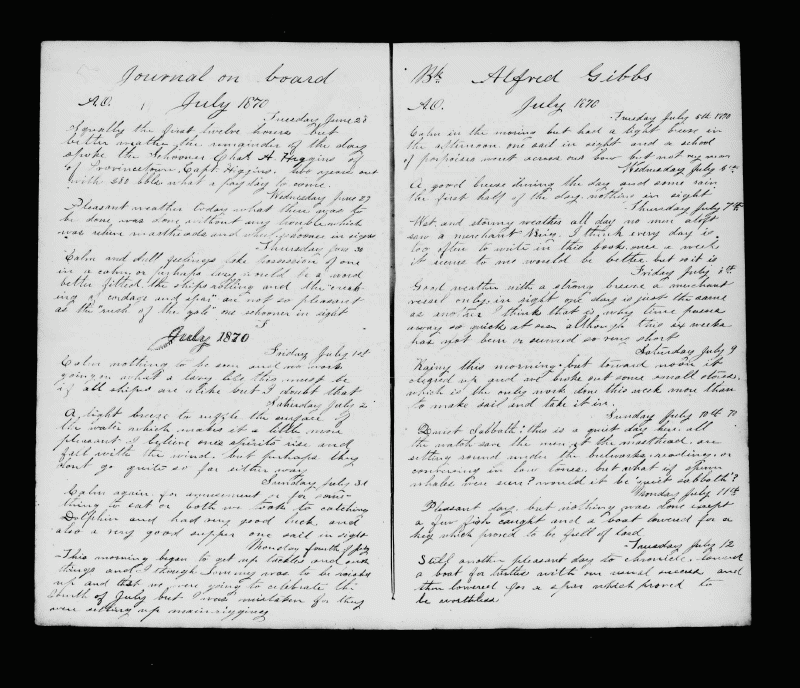 Journal on board
A.D. July 1870
Tuesday June 28
Squally the first twelve hours but
better weather the remainder of the day
spoke the Schooner Chas A. Higgins of
of Provincetown Capt. Higgins. two years out
with 280 bbls what a payday to come.
Wednesday June 29
Pleasant weather today what there was to
be done was done without any trouble which
was return mastheads and wheel schooner in sight
Thursday June 30
Calm and dull feelings take possession of one
in a calm or perhaps lazy would be a word
better fitted. the ships rolling and the "creak
ing of cordage and spar" are not so pleasant
as the "rush of the gale" one schooner in sight
July 1870
Friday July 1st
Calm nothing to be seen and no work
going on what a lazy life this must be
if all ships are alike but I doubt that
Saturday July 2
A light breeze to ruffle the surface of
the water which makes it a little more
pleasant I believe ones spirits rise and
fall with the wind. but perhaps they
dont go quite so far either way
Sunday July 3d
Calm again. for amusement or for some
thing to eat or both we took to catching
Dolphin and had very good luck and
also a very good supper one sail in sight
Monday fourth of July
This morning began to get up tackles and
things and I though Jimmy was to be
up and that we were going to celebrate the
fourth of July but I was mistaken for they
were setting up main rigging
Bk Alfred Gibbs
A.D. July 1870
Tuesday July 5th 1870
Calm in the morning but had a light breeze in
the afternoon one sail in sight and a school
of porpoises went across our bow but not
Wednesday July 6th
A good breeze during the day and some rain
the first half of the day. nothing in sight
Thursday July 7th
Wet and stormy weather all day no men aloft
saw a merchant Brig. I think every day is
too often to write in this book once a week
it seems to me would be better but so it is
Friday July 8th
Good weather with a strong breeze a merchant
vessel only in sight one day is just the same
as another I think that is why time passes
away so quick at sea although this six weeks
has not been or seemed so very short
Saturday July 9
Rainy this morning but toward noon it
cleared up and we broke out some small stores.
which is the only work done this week more than
to make sail and take it in.
Sunday July 10th 70
Quiet Sabbath! this is a quiet day here. all
the watch save the men at the masthead are
sitting around under the bulwarks reading or
conversing in low tones. but what if sperm
whales were seen? would it be "quiet sabbath"?
Monday July 11th
Pleasant day. but nothing was done except
a few fish caught and a boat lowered for a
keg which proved to be full of lard
Tuesday July 12
Still another pleasant day to chronicle. lowered
a boat for turtles with our usual success and
then lowered for a spar which proved to
be worthless